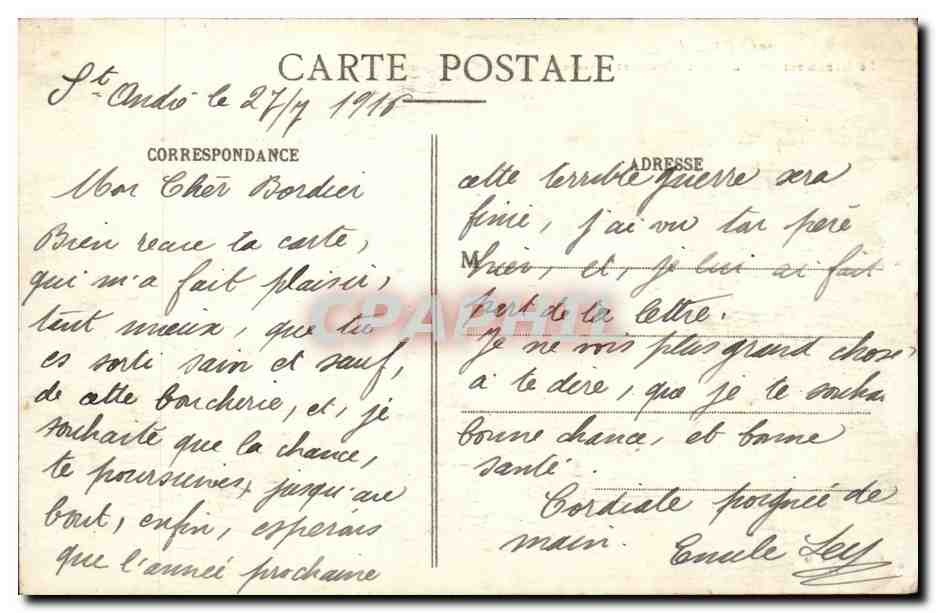 CARTE POSTALE
St. André le 27/7 1916
CORRESPONDANCE
Mon Chèr Bordier
Bien recue ta carte,
qui m'a fait plaisir,
tant mieux, que tu
es sorti sain et sauf,
de cette boucherie, et, je
souhaite que la chance,
te poursuives, jusqu'au
bout, enfin, esperons
que l'année prochaine
ADRESSE
cette terrible guerre sera
finie, j'ai vu ton pèrè
M
hier, et, je lui ai fait
part de ta lettre.
Je ne vois plus grand chose
à te dire, que je te souhai
bonne chance, et bonne
santé.
Cordiale poignée de
main. Emile Ley
CPAPHIL